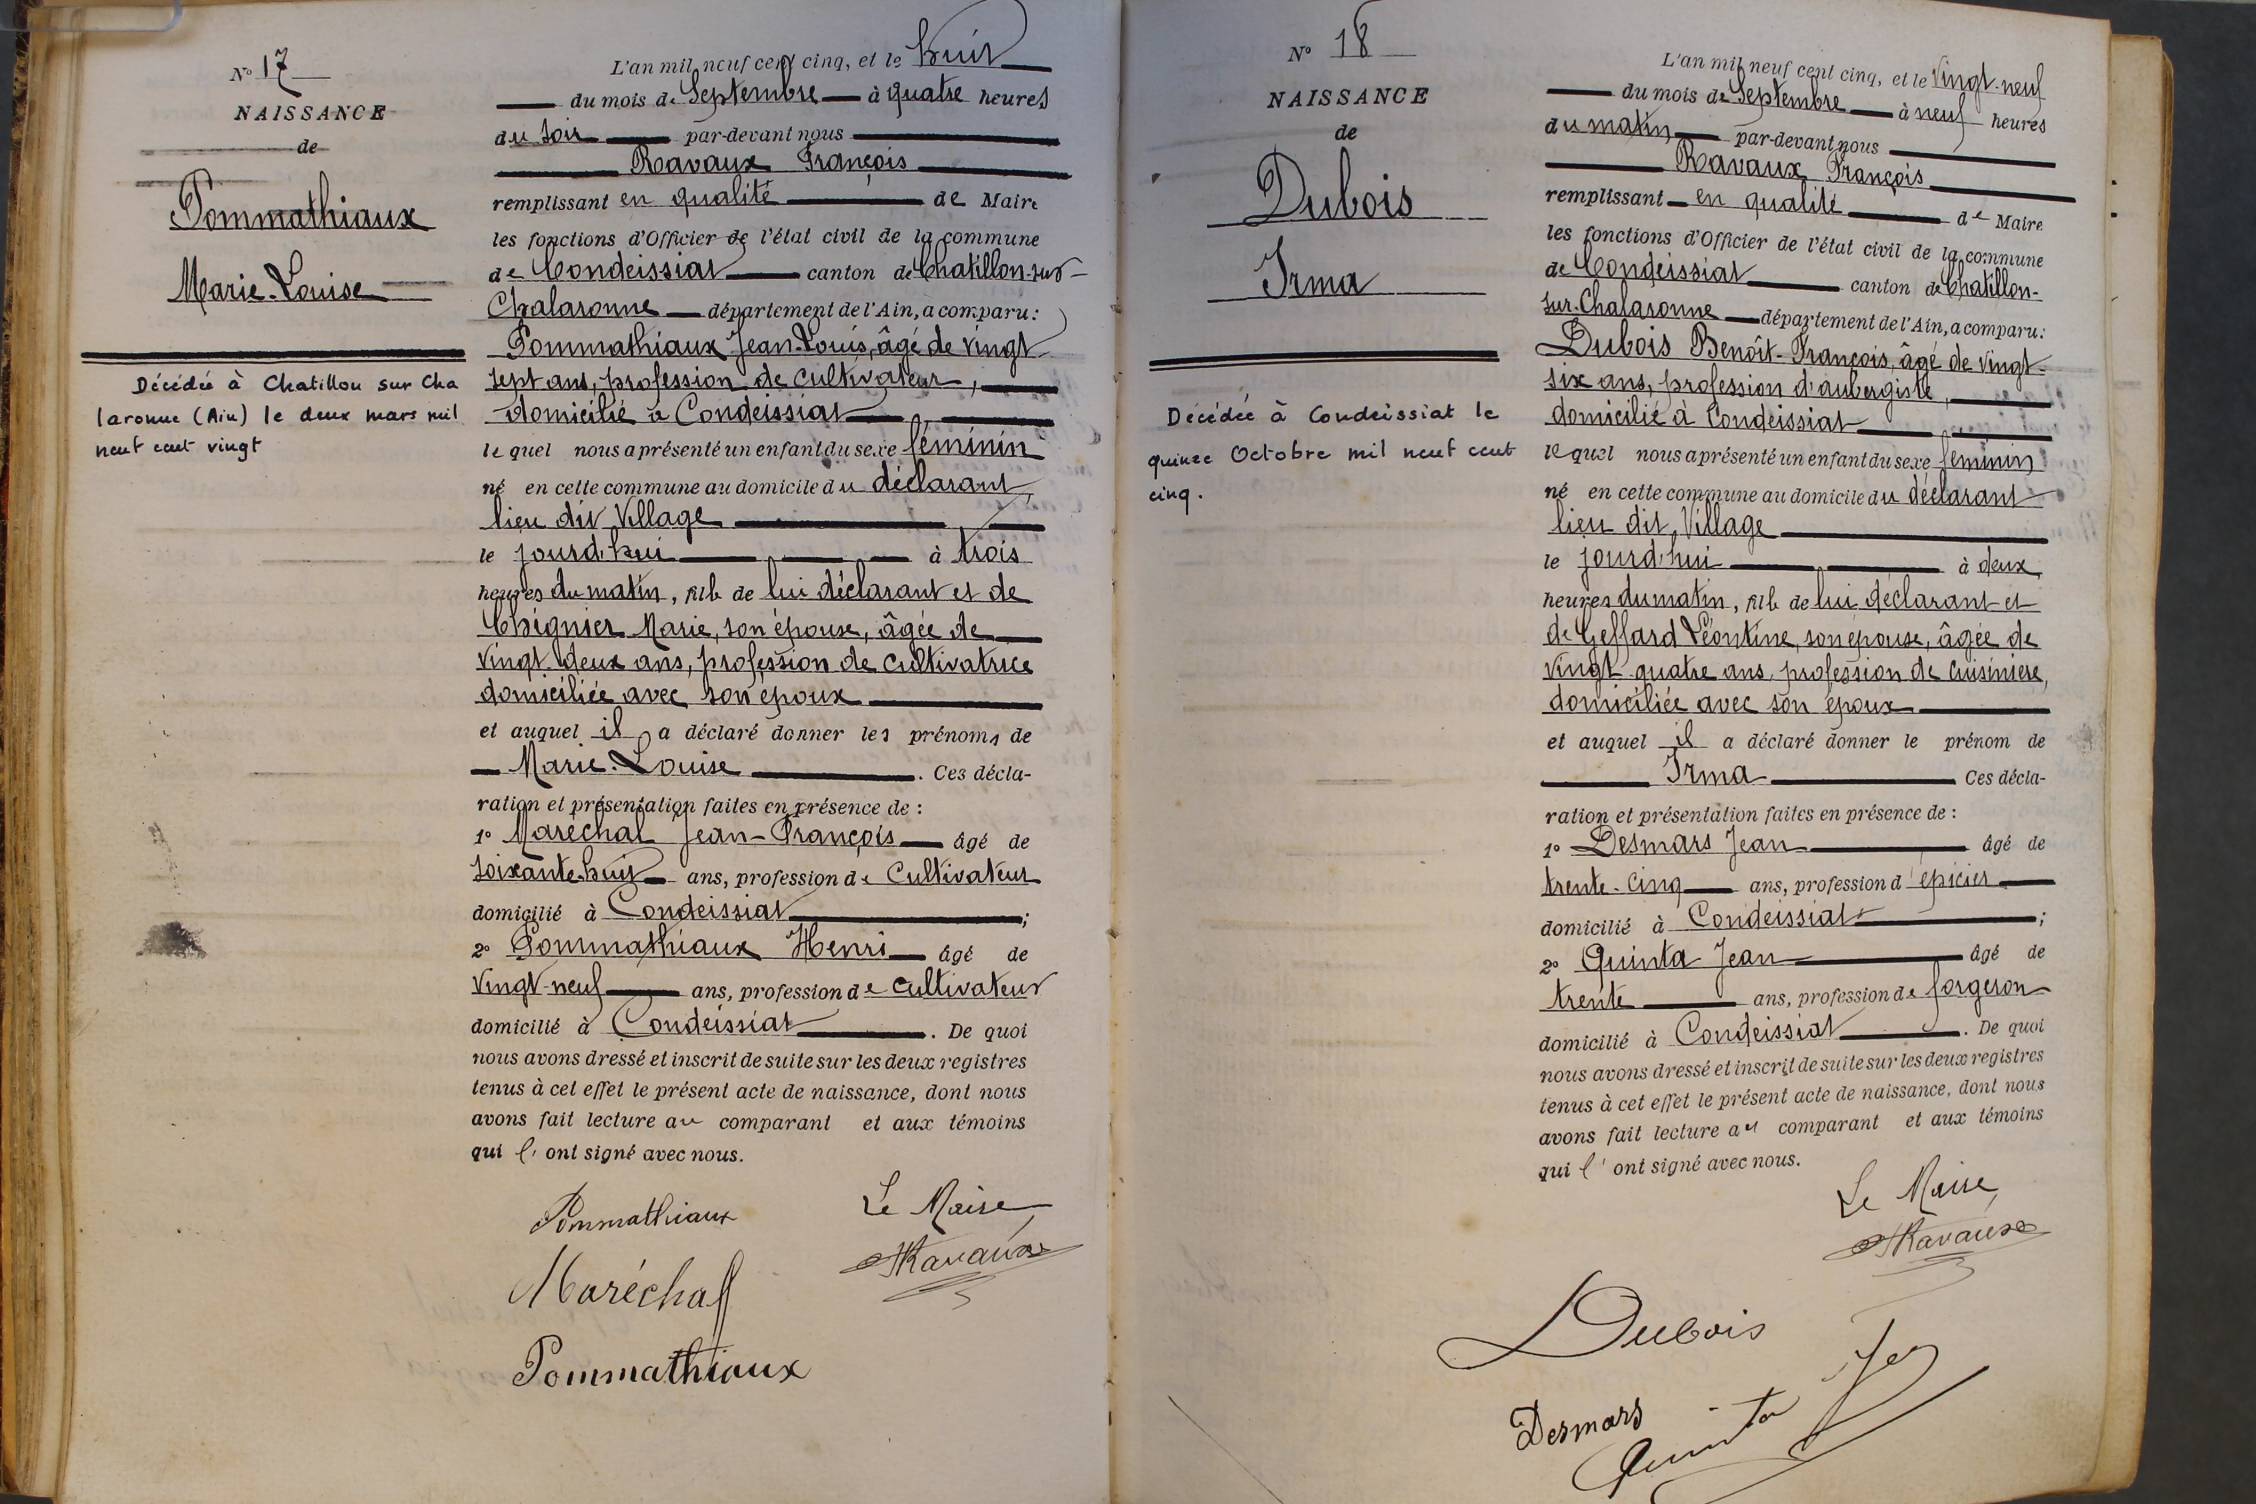 N° 17
NAISSANCE
de
Pommathiaux
Marie-Louise
Décédée à Chatillon sur Cha
laronne (Ain) le deux mars mil
neuf cent vingt
L'an mil neuf cent cinq, et le huit
du mois de Septembre à quatre heures
du soir par-devant nous
Ravaux François
remplissant en qualité de Maire
les fonctions d'Officier de l'état civil de la commune
de Condeissiat canton de Chatillon-sur-
Chalaronne département de l'Ain, a comparu:
Pommathiaux Jean-Louis, âgé de vingt
sept ans, profession de cultivateur,
domicilié à Condeissiat
lequel nous a présenté un enfant du sexe féminin
né en cette commune au domicile du déclarant,
lieu dit Village
le jourd'hui à trois
heures du matin, fille de lui déclarant et de
Chignier Marie, son épouse, âgée de
vingt-deux ans, profession de cultivatrice
domiciliée avec son époux
et auquel il a déclaré donner les prénoms de
Marie-Louise. Ces décla-
ration et présentation faites en présence de :
1° Maréchal Jean-François âgé de
soixante-huit ans, profession de cultivateur
domicilié à Condeissiat;
2° Pommathiaux Henri âgé de
vingt-neuf ans, profession de cultivateur
domicilié à Condeissiat. De quoi
nous avons dressé et inscrit de suite sur les deux registres
tenus à cet effet le présent acte de naissance, dont nous
avons fait lecture au comparant et aux témoins
qui l'ont signé avec nous.
Pommathiaux
Le Maire
Ravaux
Maréchal
Pommathiaux
N° 18
NAISSANCE
de
Dubois
Irma
Décédée à Condeissiat le
quinze Octobre mil neuf cent
cinq.
L'an mil neuf cent cinq, et le vingt-neuf
du mois de Septembre à neuf heures
du matin par-devant nous
Ravaux François
remplissant en qualité de Maire
les fonctions d'Officier de l'état civil de la commune
de Condeissiat canton de Chatillon-
sur-Chalaronne département de l'Ain, a comparu:
Dubois Benoît-François, âgé de vingt-
six ans, profession d'aubergiste,
domicilié à Condeissiat
lequel nous a présenté un enfant du sexe féminin
né en cette commune au domicile du déclarant
lieu dit Village
le jourd'hui à deux
heures du matin, fille de lui déclarant et
de Geffard Léontine, son épouse, âgée de
vingt-quatre ans, profession de cuisinière,
domiciliée avec son époux
et auquel il a déclaré donner le prénom de
Irma Ces décla-
ration et présentation faites en présence de :
1° Desmars Jean âgé de
trente-cinq ans, profession d'épicier
domicilié à Condeissiat;
2° Quinta Jean âgé de
trente ans, profession de forgeron
domicilié à Condeissiat. De quoi
nous avons dressé et inscrit de suite sur les deux registres
tenus à cet effet le présent acte de naissance, dont nous
avons fait lecture au comparant et aux témoins
qui l'ont signé avec nous.
Le Maire
Ravaux
Dubois
Desmars
Quinta Jean